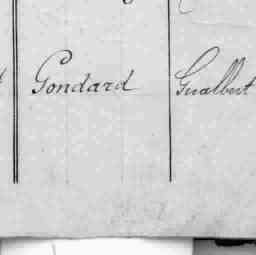 Gondard Gualbert